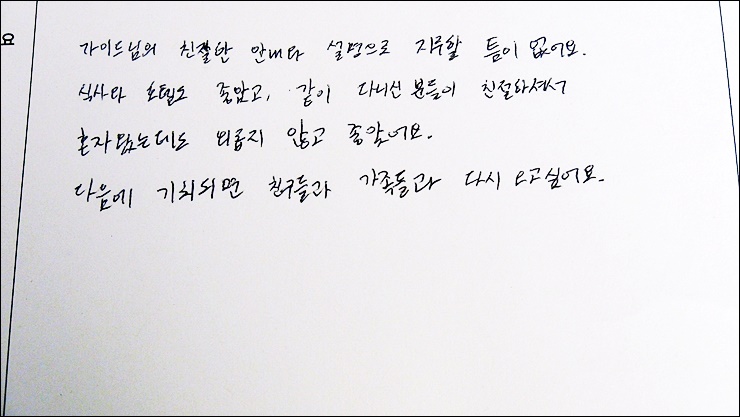 요
가이드님의 친절한 안내와 설명으로 지루할 틈이 없어요.
식사와 호텔도 좋았고, 같이 다니신 분들이 친절하셔서
혼자왔는데도 외롭지 않고 좋았어요.
다음에 기회되면 친구들과 가족들과 다시 오고싶어요.